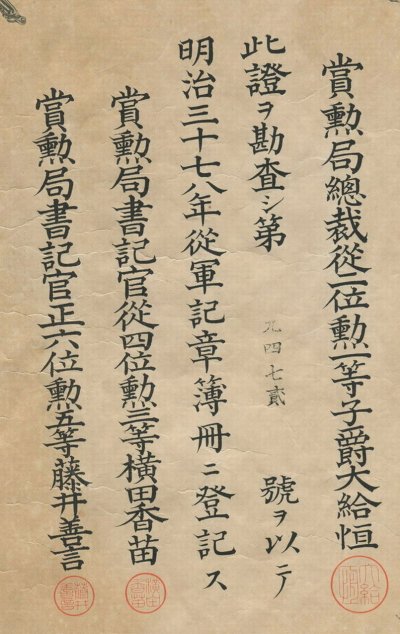 賞勲局總裁從二位勲一等子爵大給恒
此證ヲ勘査シ第九四七貳號ヲ以テ
明治三十七八年從軍記章簿冊ニ登記ス
賞勲局書記官從四位勲三等横田香苗
賞勲局書記官正六位勲五等藤井善言